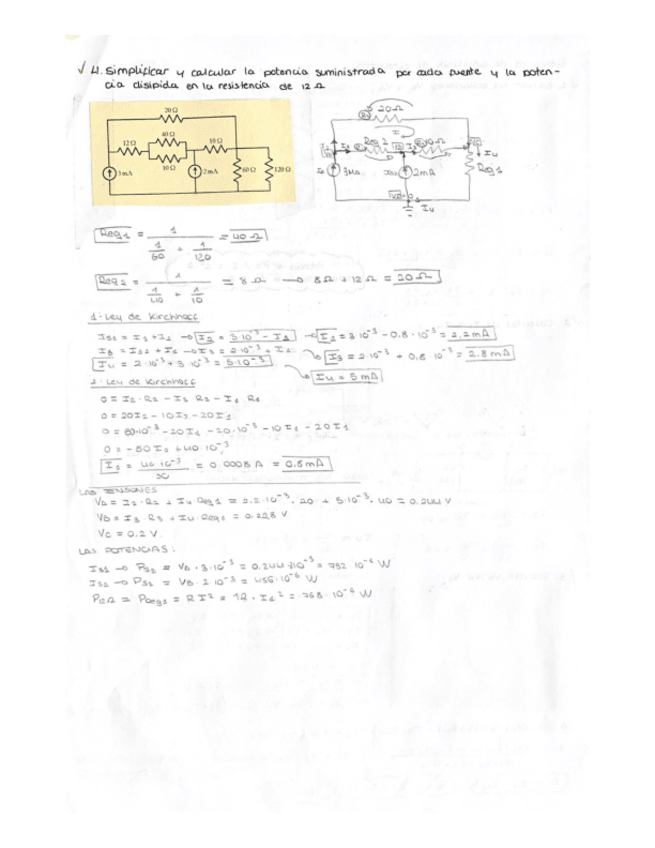 √ 4. Simplificar y calcular la potencia suministrada por cada fuente y la poten-
cia disipida en la resistencia de 12 Ω
20 Ω
40 Ω
12 Ω
10 Ω
10 Ω
3 mA
2 mA
60 Ω
120 Ω
20Ω
Req 2
10Ω
3mA
2mA
Req 1
I4
I4
Req1 = 1 / (1/60 + 1/120) = 40 Ω
Req2 = 1 / (1/40 + 1/10) = 8 Ω → 8 Ω + 12 Ω = 20 Ω
1ª Ley de Kirchhoff
IS1 = I1 + I2 → I2 = 3·10⁻³ - I1 → I2 = 3·10⁻³ - 0.8·10⁻³ = 2.2 mA
I3 = IS2 + I1 → I3 = 2·10⁻³ + I1 → I3 = 2·10⁻³ + 0.8·10⁻³ = 2.8 mA
I4 = 2·10⁻³ + 3·10⁻³ = 5·10⁻³ → I4 = 5 mA
2ª Ley de Kirchhoff
0 = I2·R2 - I3 R3 - I1 R1
0 = 20I2 - 10I3 - 20I1
0 = 60·10⁻³ - 20I1 - 20·10⁻³ - 10I1 - 20I1
0 = -50I1 + 40·10⁻³
I1 = 40·10⁻³ / 50 = 0.0008 A = 0.8 mA
LAS TENSIONES
VA = I2·R2 + I4 Req1 = 2.2·10⁻³·20 + 5·10⁻³·40 = 0.244 V
VB = I3 R3 + I4 Req1 = 0.228 V
VC = 0.2 V
LAS POTENCIAS: